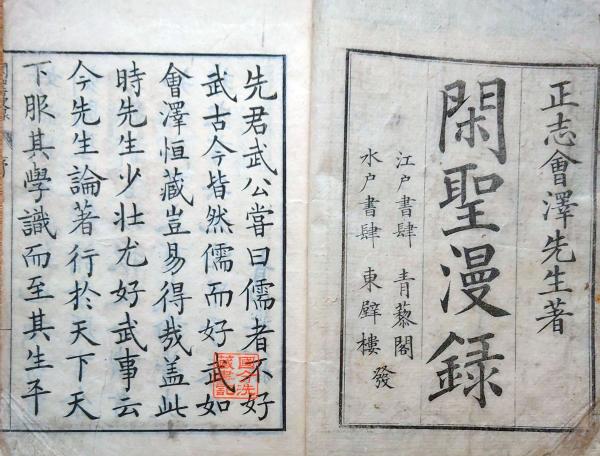 正志會澤先生著
閑聖漫録
江戸書肆 青藜閣
水戸書肆 東壁樓 發
先君武公嘗曰儒者不好
武古今皆然儒而好武如
會澤恒藏豈易得哉盖此
時先生少壮尤好武事云
今先生論著行於天下天
下服其學識而至其生平